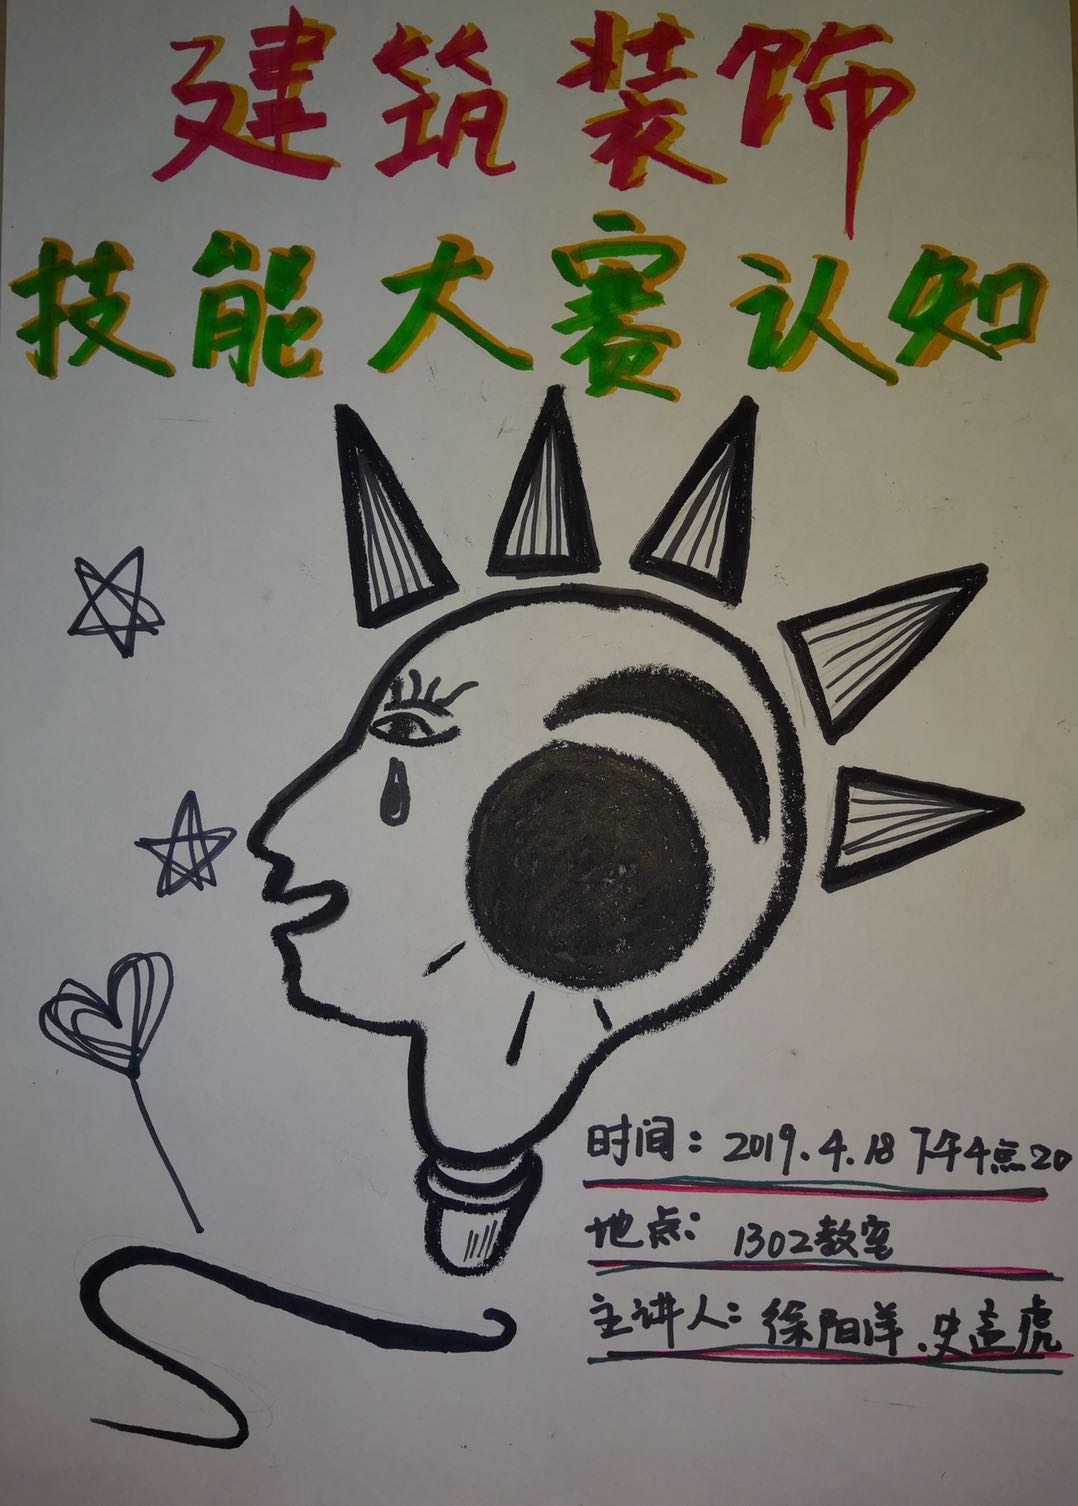 建筑装饰
技能大赛认知
时间：2019.4.18 下午4点20
地点：1302教室
主讲人：徐阳洋、史孟虎